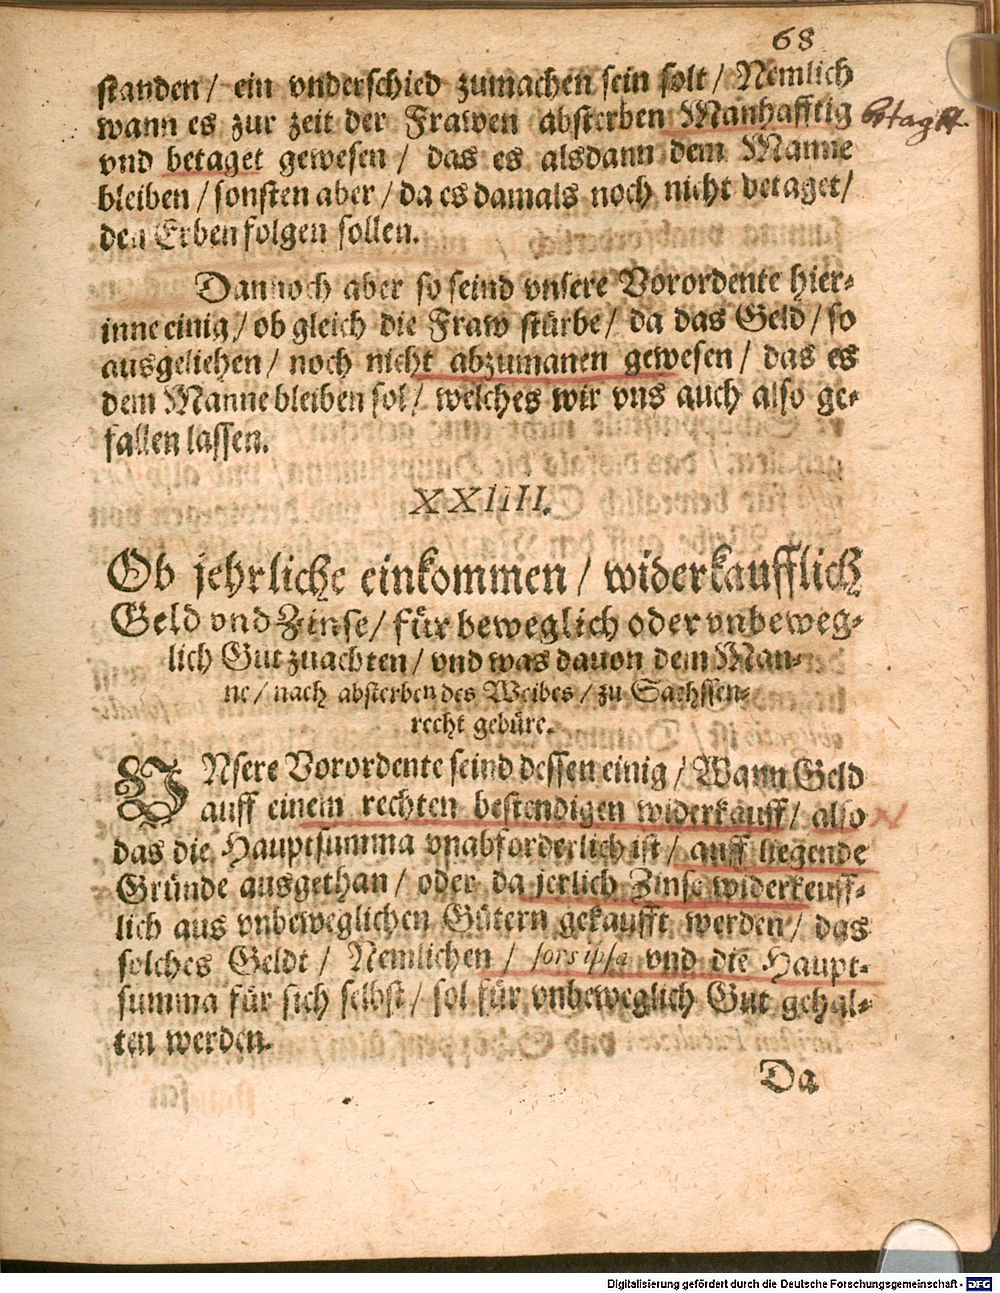 68
standen / ein vnderschied zumachen sein solt / Nemlich
wann es zur zeit der Frawen absterben Manhafftig
vnd betaget gewesen / das es alsdann dem Manne
bleiben / sonsten aber / da es damals noch nicht betaget /
den Erben folgen sollen.
Dannoch aber so seind vnsere Vorordente hier-
inne einig / ob gleich die Fraw stürbe / da das Geld / so
ausgeliehen / noch nicht abzumanen gewesen / das es
dem Manne bleiben sol / welches wir vns auch also ge-
fallen lassen.
XXIIII.
Ob jehrliche einkommen / widerkaufflich
Geld vnd Zinse / für beweglich oder vnbeweg-
lich Gut zuachten / vnd was dauon dem Man-
ne / nach absterben des Weibes / zu Sachssen-
recht gebüre.
VNsere Vorordente seind dessen einig / Wann Geld
auff einem rechten bestendigen widerkauff / also
das die Hauptsumma vnabforderlich ist / auff liegende
Gründe ausgethan / oder da jerlich Zinse widerkeuff-
lich aus vnbeweglichen Gütern gekaufft werden / das
solches Geldt / Nemlichen / sors ipsa vnd die Haupt-
summa für sich selbst / sol für vnbeweglich Gut gehal-
ten werden.
Da
Digitalisierung gefördert durch die Deutsche Forschungsgemeinschaft - DFG